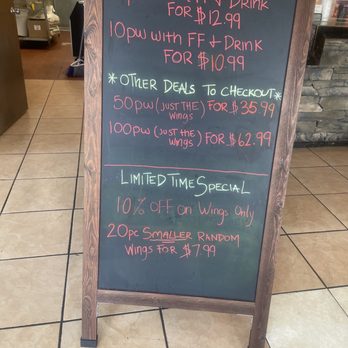 & DRINK
FOR $12.99
10pw with FF & Drink
FOR $10.99
* OTHER DEALS TO CHECKOUT *
50pw (JUST THE wings) FOR $35.99
100pw (just the wings) FOR $62.99
LIMITED TIME SPECIAL
10% OFF on Wings Only
20pc SMALLER RANDOM
Wings FOR $7.99